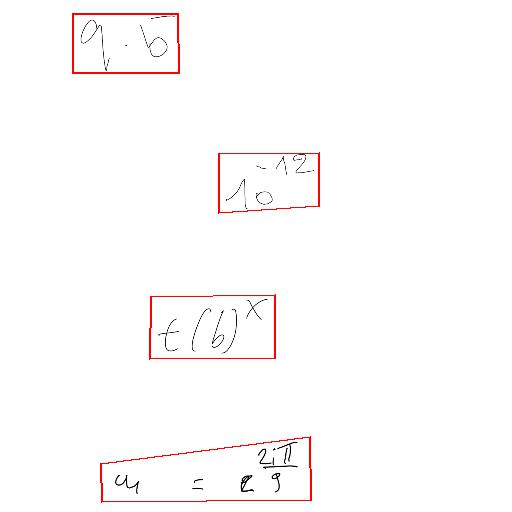 9.5
10^{-12}
t(b)^x
u = e^{\frac{2iπ}{9}}